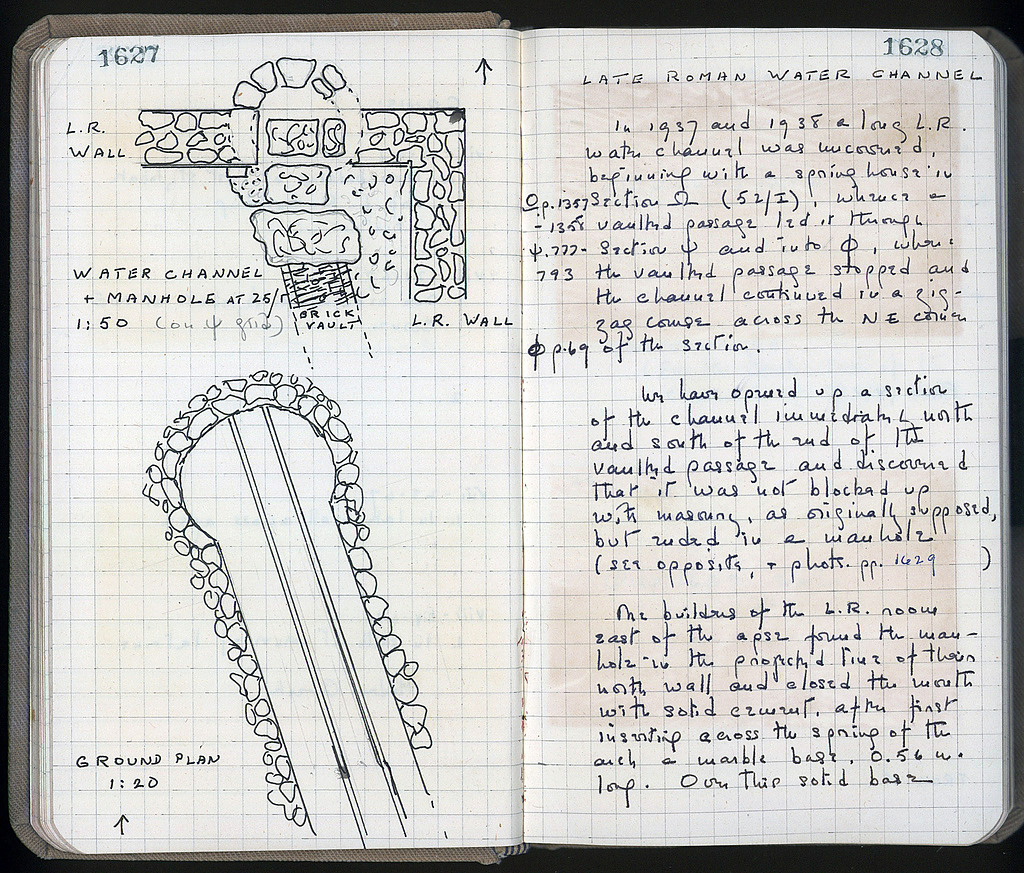 1627
L.R.
WALL
WATER CHANNEL
+ MANHOLE AT 25/
1:50 (on ψ grid)
BRICK
VAULT
L.R. WALL
GROUND PLAN
1:20
1628
LATE ROMAN WATER CHANNEL
In 1937 and 1938 a long L.R.
water channel was uncovered,
beginning with a spring house in
Ω p. 1357 Section Ω (52/I), whence a
- 1358 vaulted passage led it through
ψ. 777- Section ψ and into φ, where
793 the vaulted passage stopped and
the channel continued in a zig-
zag course across the NE corner
φ p. 69 of the section.
We have opened up a section
of the channel immediately north
and south of the end of the
vaulted passage and discovered
that it was not blocked up
with masonry, as originally supposed,
but ended in a manhole
(see opposite, + phots. pp. 1629 )
The builders of the L.R. room
east of the apse found the man-
hole in the projected line of their
north wall and closed the mouth
with solid cement, after first
inserting across the spring of the
arch a marble base, 0.56 m.
long. Over this solid base